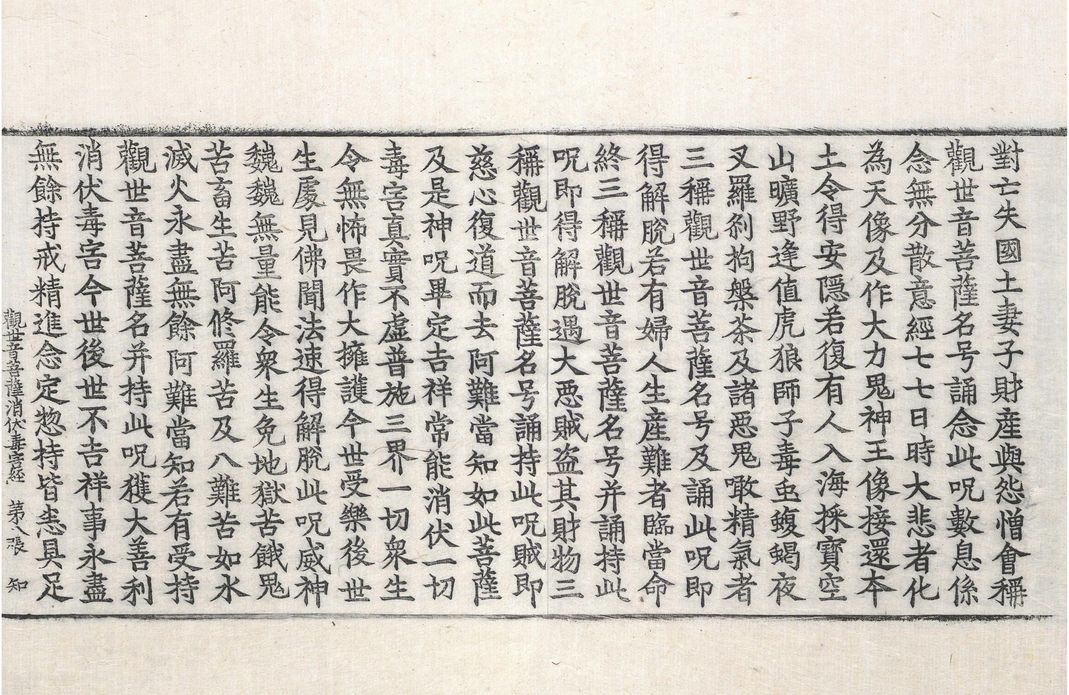 對亡失國土妻子財產與怨憎會稱
觀世音菩薩名号誦念此呪數息係
念無分散意經七七日時大悲者化
為天像及作大力鬼神王像接還本
土令得安隱若復有人入海採寶空
山曠野逢值虎狼師子毒虫蝮蝎夜
叉羅剎拘槃茶及諸惡鬼噉精氣者
三稱觀世音菩薩名号及誦此呪即
得解脫若有婦人生產難者臨當命
終三稱觀世音菩薩名号并誦持此
呪即得解脫遇大惡賊盜其財物三
稱觀世音菩薩名号誦持此呪賊即
慈心復道而去阿難當知如此菩薩
及是神呪畢定吉祥常能消伏一切
毒害真實不虛普施三界一切眾生
令無怖畏作大擁護今世受樂後世
生處見佛聞法速得解脫此呪威神
巍巍無量能令眾生免地獄苦餓鬼
苦畜生苦阿修羅苦及八難苦如水
滅火永盡無餘阿難當知若有受持
觀世音菩薩名并持此呪獲大善利
消伏毒害今世後世不吉祥事永盡
無餘持戒精進念定惣持皆悉具足
觀世音菩薩消伏毒害經 第八張 知